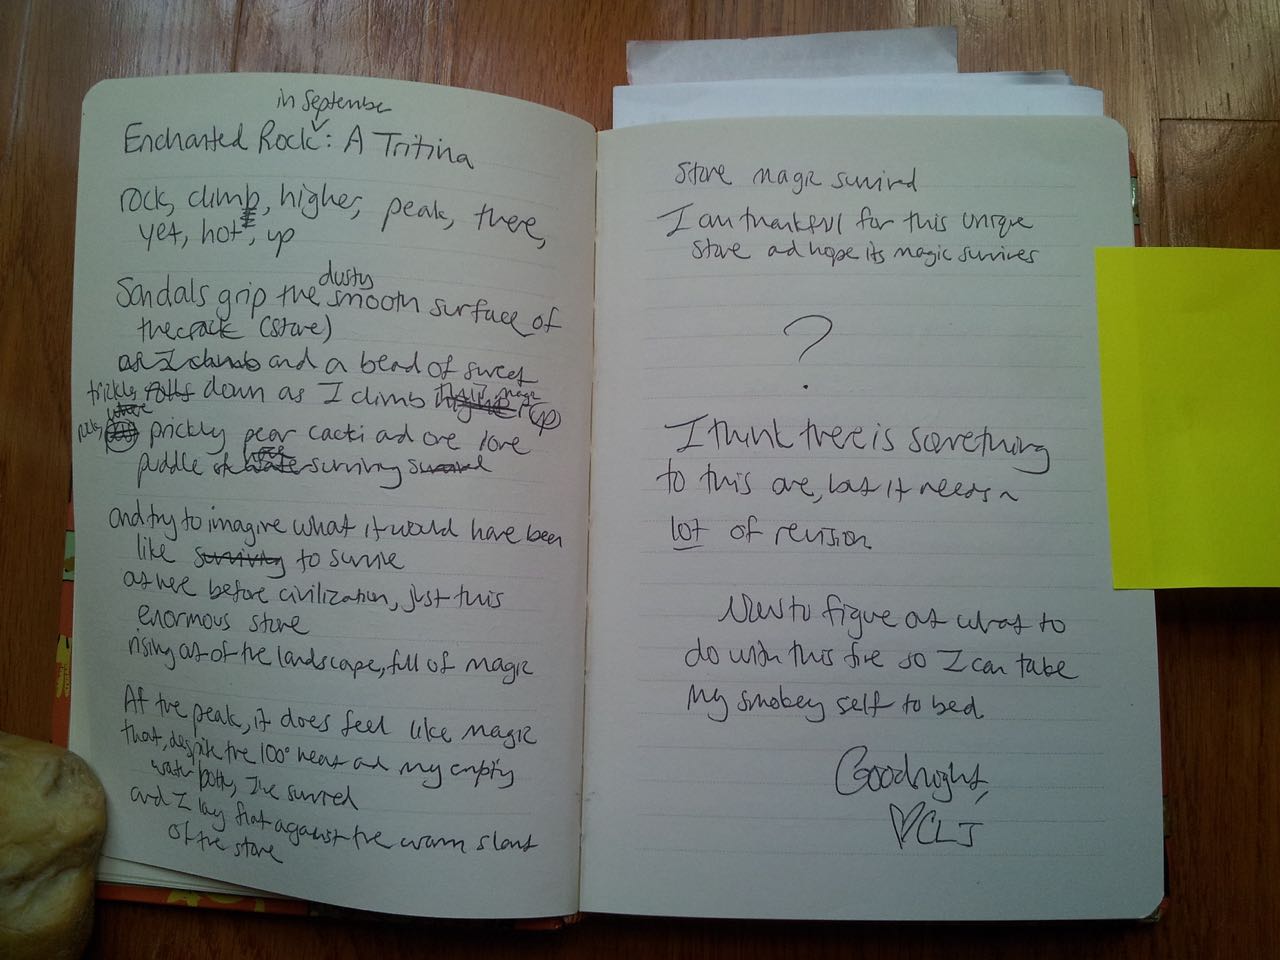 in September
Enchanted Rock: A Tritina
rock, climb, higher, peak, there,
yet, hot, up
dusty
Sandals grip the smooth surface of
the rock (stone)
as I climb and a bead of sweat
trickles rolls down as I climb higher up
prickly pear cacti and one lone
puddle of water surviving survived
and try to imagine what it would have been
like surviving to survive
out here before civilization, just this
enormous stone
rising out of the landscape, full of magic
At the peak, it does feel like magic
that, despite the 100° heat and my empty
water bottle, I've survived
and I lay flat against the warm slant
of the stone
stone magic survived
I am thankful for this unique
stone and hope its magic survives
?
I think there is something
to this one, but it needs a
lot of revision
Now to figure out what to
do with this fire so I can take
my smokey self to bed.
Goodnight,
♡CLJ